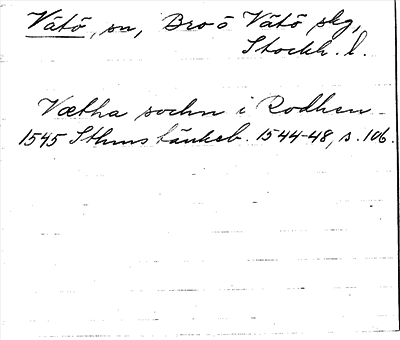 Vätö, sn, Bro o Vätö skg,
Stockh. l.
Vætha sochn i Rodhen
1545 Sthms tänkeb. 1544-48, s. 106.